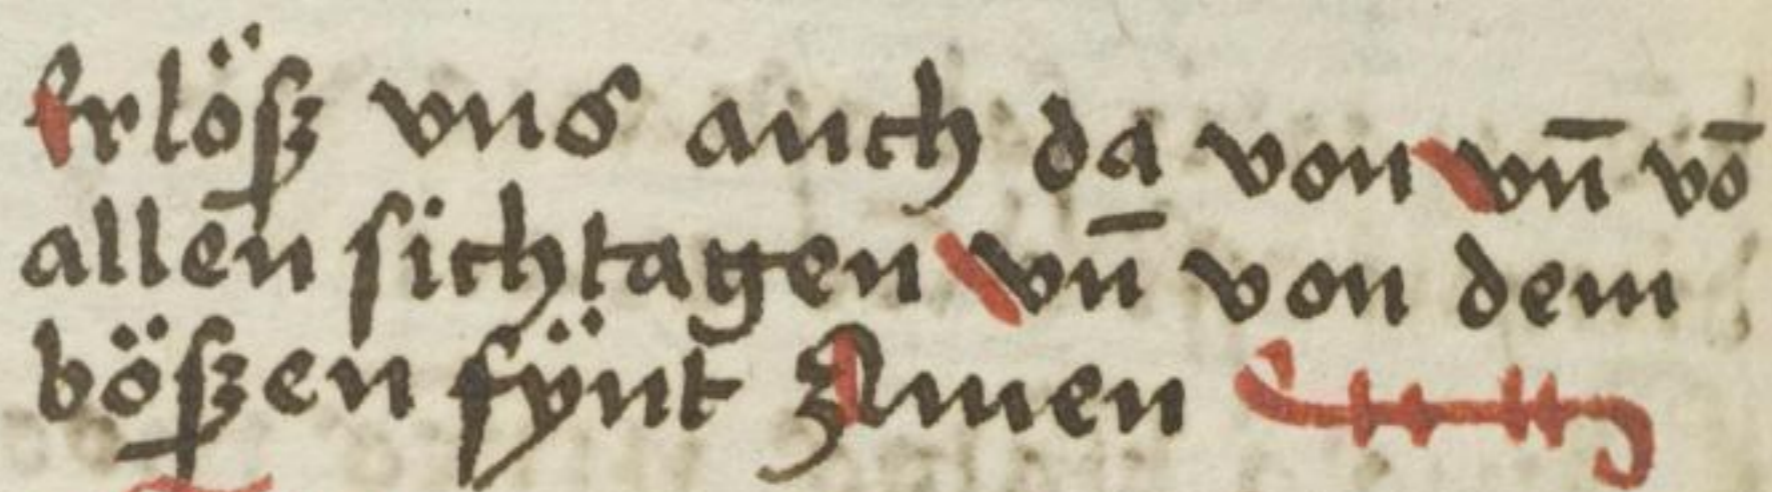 Erlöß vns auch da von vn̄ vō
allen sichtagen vn̄ von dem
bößen fÿnt Amen